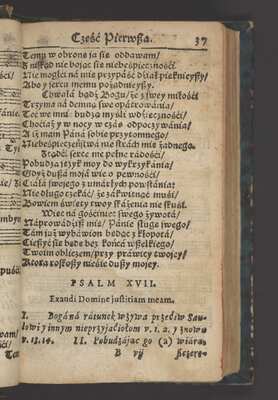 Część Pierwsza.
37
Temu w obronę ja się oddawam/
Z niskąd nie bojąc się niebespiecznośći.
Nie mogłći na mię przypáść dźiał pięknieyszy/
Abo y sercu memu pożądnieyszy.
Chwałá bądź Bogu/ że z swey miłośći
Trzyma ná demną swe opátrowánia/
Toć we mnie budzą myśli wdźięcznośći/
Choćiaż y w nocy w czás odpoczywánia/
A iż mam Páná sobie przytomnego/
Niebespieczeństwá nie strách mię żadnego.
Ztądći serce me pełne rádośći/
Pobudza język moy do wykrzykánia/
Gdyż duszá mojá wie o pewnośći/
Ciáłá swojego z umárłych powstánia:
Nie długo czekáć/ że zákwitnąć muśi/
Bowiem święty twoy skáżenia nie skuśi.
Więc ná gośćiniec swego żywotá/
Náprowádźisz mię/ Pánie sługę swego/
Tám już wybáwion będąc z kłopotá/
Cieszyć się będę bez końcá wszelkiego/
Twoim obliczem/ przy práwicy twojey/
Ktora roskoszy nieśie duszy mojey.
PSALM XVII.
Exaudi Domine justitiam meam.
I. Bogá ná rátunek wzywa przećiw Sau-
lowi y innym nieprzyjaćiołom v. 1. 2. y znowu
v. 13. 14. II. Pobudzájąc go (a) wiárą
B vij
szczere-